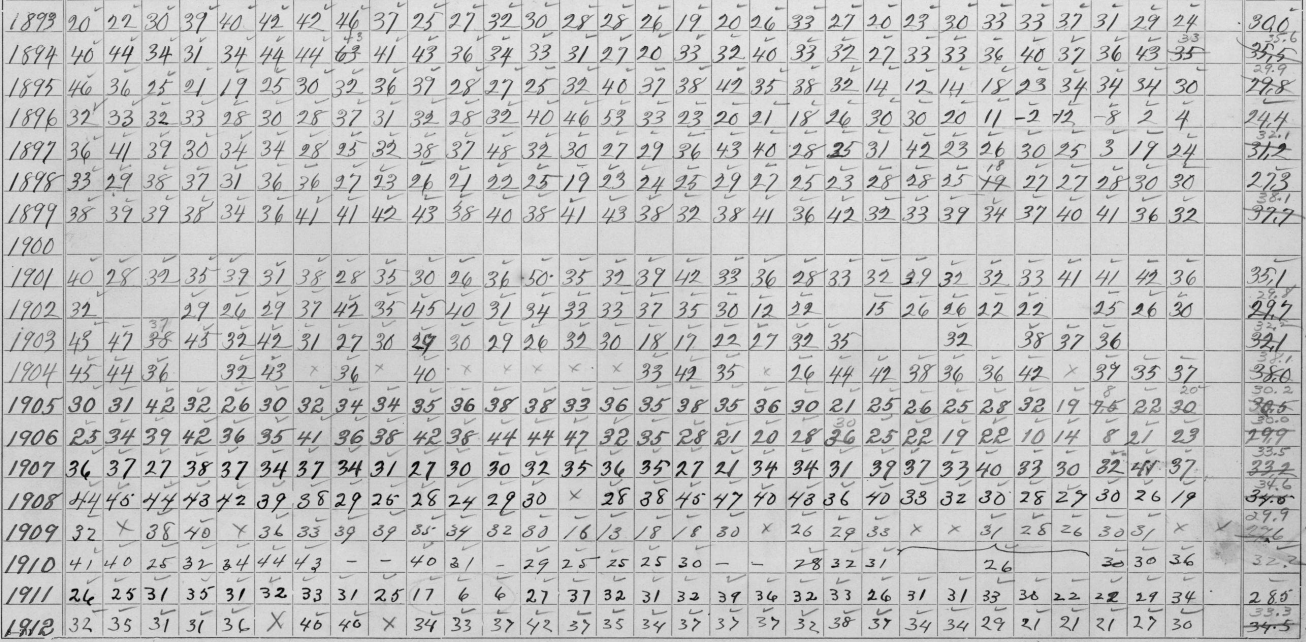 1893 20 22 30 39 40 42 42 46 37 25 27 32 30 28 28 26 19 20 26 33 27 20 23 30 33 33 37 31 29 24 30.0
1894 40 44 34 31 34 44 44 63 43 41 43 36 34 33 31 27 20 33 32 40 33 32 27 33 33 36 40 37 36 43 35 33 35.5 35.6
1895 46 36 25 21 19 25 30 32 36 39 28 27 25 32 40 37 38 42 35 38 32 14 12 14 18 23 34 34 34 30 29.8 29.9
1896 32 33 32 33 28 30 28 37 31 32 28 32 40 46 53 33 23 20 21 18 26 30 30 20 11 -2 -12 -8 2 4 24.4
1897 36 41 39 30 34 34 28 25 32 38 37 48 32 30 27 29 36 43 40 28 25 31 42 23 26 30 25 3 19 24 31.2 32.1
1898 33 29 38 37 31 36 36 27 23 26 21 22 25 19 23 24 25 29 27 25 23 28 28 25 19 18 27 27 28 30 30 27.3
1899 38 39 39 38 34 36 41 41 42 43 38 40 38 41 43 38 32 38 41 36 42 32 33 39 34 37 40 41 36 32 37.7 38.1
1900
1901 40 28 32 35 39 31 38 28 35 30 26 36 50 35 32 39 42 33 36 28 33 32 39 32 32 33 41 41 42 36 35.1
1902 32 29 26 29 37 42 35 45 40 31 34 33 33 37 35 30 12 22 15 26 26 22 22 25 26 30 29.7 29.8
1903 43 47 38 37 45 32 42 31 27 30 29 30 29 26 32 30 18 17 22 27 32 35 32 38 37 36 32.1 32.2
1904 45 44 36 32 43 x 36 x 40 x x x x x 33 42 35 x 26 44 42 38 36 36 42 x 39 35 37 38.0 38.1
1905 30 31 42 32 26 30 32 34 34 35 36 38 38 33 36 35 38 35 36 30 21 25 26 25 28 32 19 8 22 30 20 30.5 30.2
1906 25 34 39 42 36 35 41 36 38 42 38 44 44 47 32 35 28 21 20 28 36 30 25 22 19 22 10 14 8 21 23 29.9 30.0
1907 36 37 27 38 37 34 37 34 31 27 30 30 32 35 36 35 27 21 34 34 31 39 37 33 40 33 30 32 41 37 33.2 33.5
1908 44 45 44 43 42 39 38 29 25 28 24 29 30 x 28 38 45 47 40 43 36 40 33 32 30 28 27 30 26 19 34.5 34.6
1909 32 x 38 40 x 36 33 39 39 35 34 32 30 16 13 18 18 30 x 26 29 33 x x 31 28 26 30 31 x x 29.9
1910 41 40 25 32 34 44 43 - - 40 31 - 29 25 25 25 30 - - 28 32 31 26 30 30 36 32.2
1911 26 25 31 35 31 32 33 31 25 17 6 6 27 37 32 31 32 39 36 32 33 26 31 31 33 30 22 22 29 34 28.5
1912 32 35 31 31 36 x 40 40 x 34 33 37 42 37 35 34 37 37 37 32 38 37 34 34 29 21 21 21 27 30 34.5 33.3